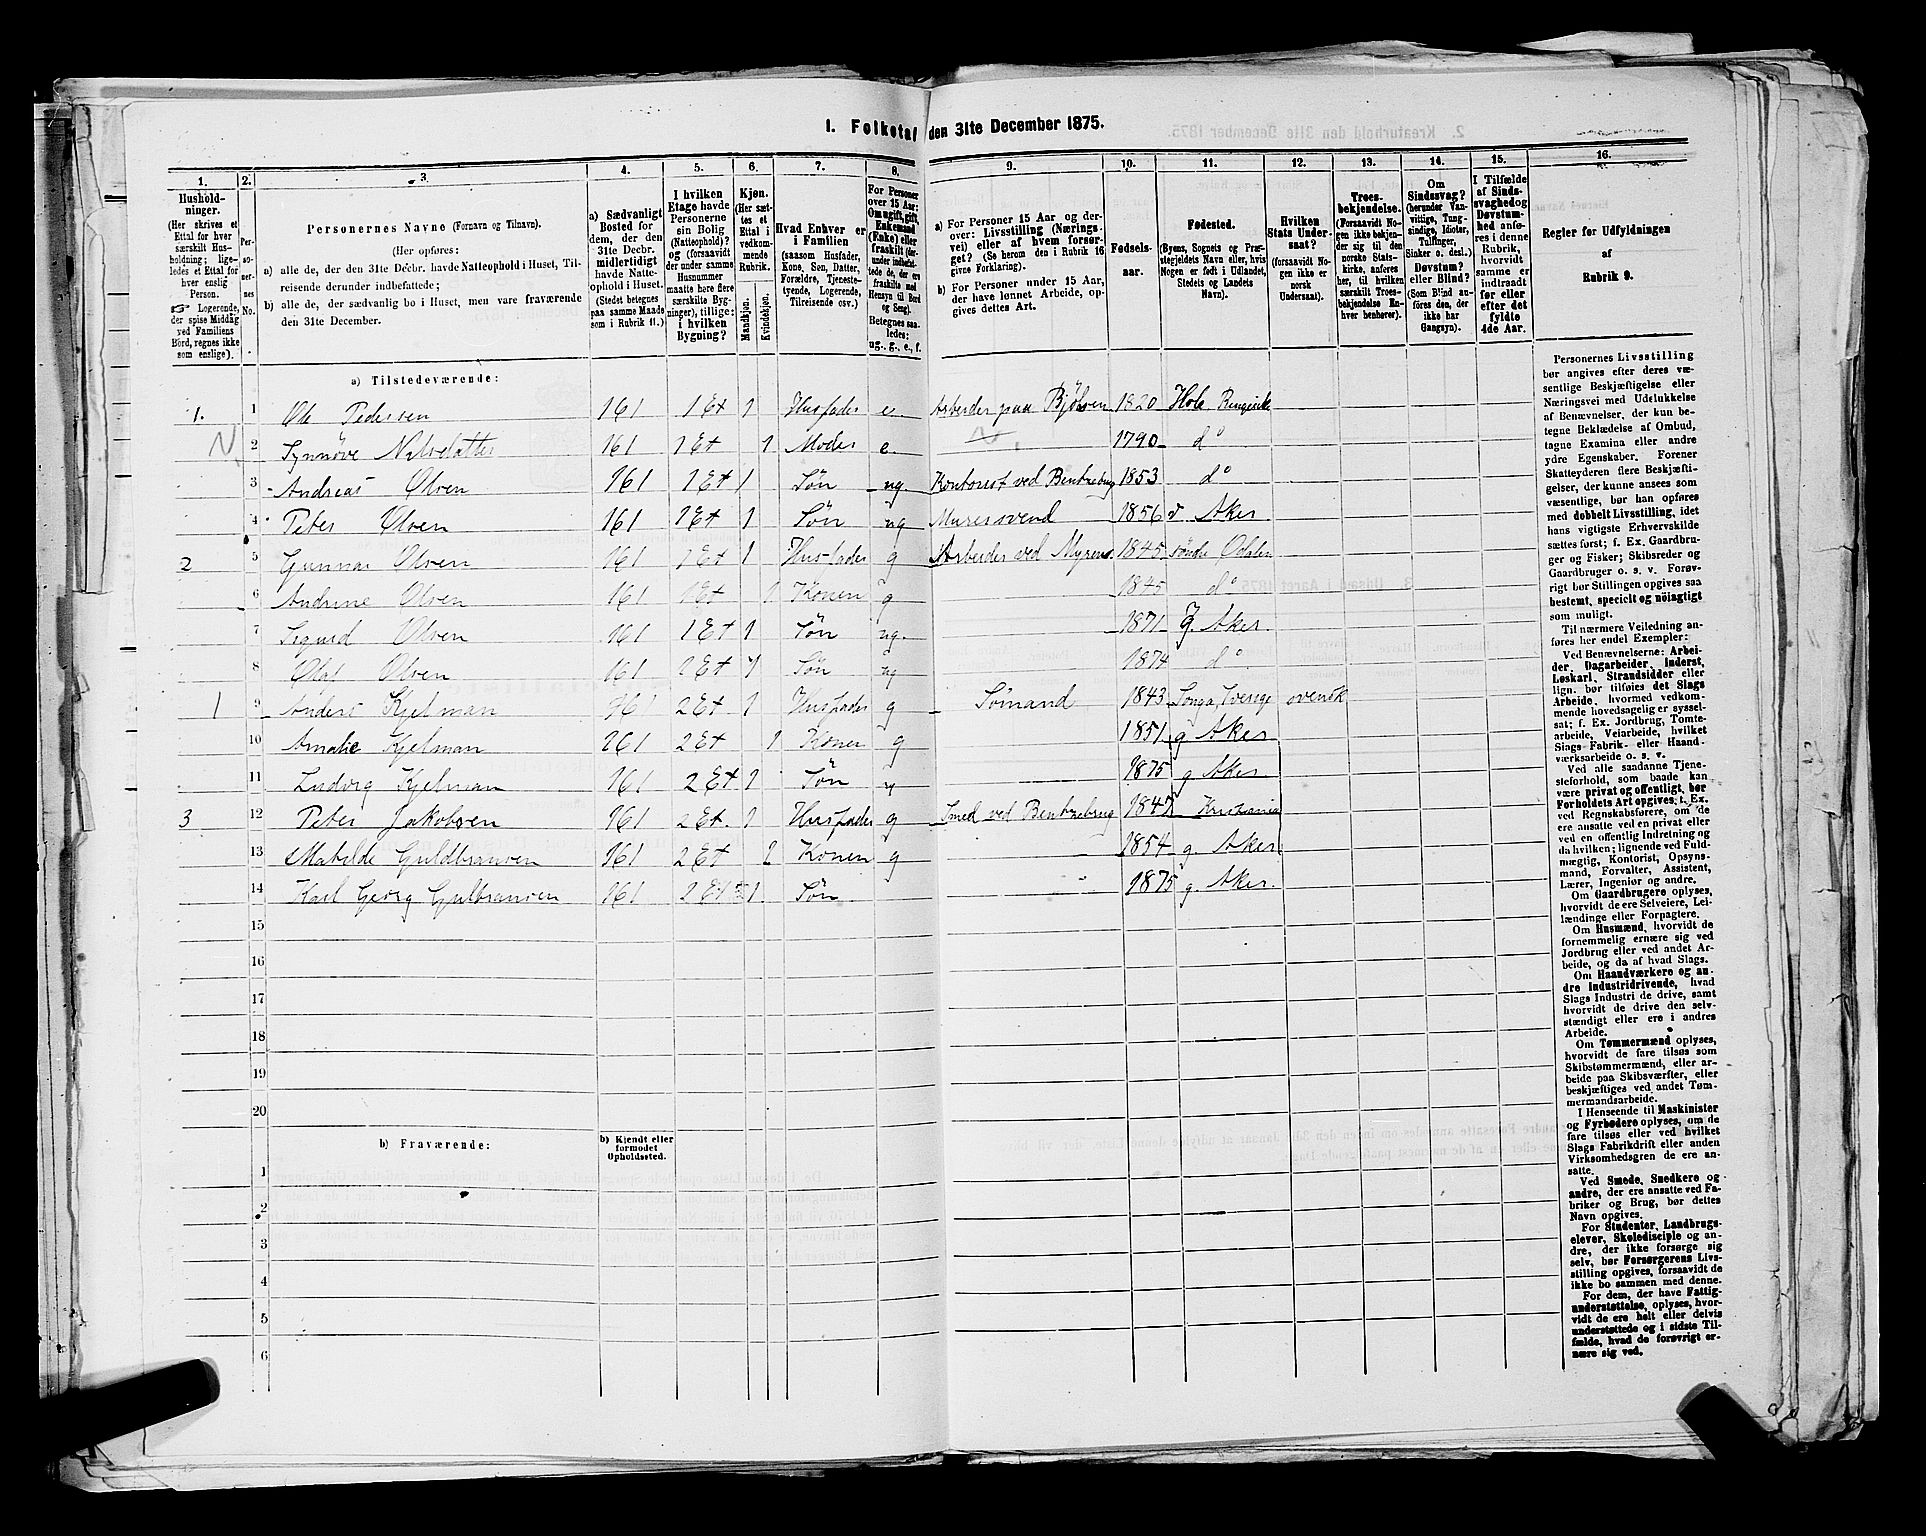 1. Folketal den 31te December 1875.
1. 2. 3. 4. 5. 6. 7. 8. 9. 10. 11. 12. 13. 14. 15. 16.
Hushold-
ninger.
(Her skrives et
Ettal for hver
særskilt Hus-
holdning; lige-
ledes et Ettal for
hver enslig
Person.
Logerende,
der spise Middag
ved Familiens
Bord, regnes ikke
som enslige).
Per-
so-
ner-
nes
No.
Personernes Navne (Fornavn og Tilnavn).
(Her opføres:
a) alle de, der den 31te Decbr. havde Natteophold i Huset, Til-
reisende derunder indbefattede;
b) alle de, der sædvanlig bo i Huset, men vare fraværende
den 31te December.
a) Sædvanligt
Bosted for
dem, der den
31te Decbr.
midlertidigt
havde Natte-
ophold i Huset.
(Stedet betegnes
paa samme Maade
som i Rubrik 11.)
I hvilken
Etage havde
Personerne
sin Bolig
(Natteophold)?
og (forsaavidt
der under samme
Husnummer
maatte høre flere
særskilte Byg-
ninger), tillige:
i hvilken
Bygning?
Kjøn.
(Her sæt-
tes et
Ettal i
vedkom-
mende
Rubrik.
Mandkjøn.
Kvindekjøn.
Hvad Enhver er
i Familien
(saasom Husfader,
Kone, Søn, Datter,
Forældre, Tjeneste-
tyende, Logerende,
Tilreisende osv.)
For Personer
over 15 Aar:
Om ugift, gift,
Enkemand
(Enke) eller
fraskilt (der-
under indbefat-
tede de, der ere
fraskilte med
Hensyn til Bord
og Seng).
Betegnes saa-
ledes:
ug., g., e., f.
a) For Personer 15 Aar og der-
over: Livsstilling (Nærings-
vei) eller af hvem forsør-
get? (Se herom den i Rubrik 16
givne Forklaring).
b) For Personer under 15 Aar,
der have lønnet Arbeide, op-
gives dettes Art.
Fødsels-
aar.
Fødested.
(Byens, Sognets og Præ-
stegjeldets Navn eller, hvis
Nogen er født i Udlandet,
Stedets og Landets
Navn).
Hvilken
Stats Under-
saat?
(forsaavidt No-
gen ikke er
norsk
Undersaat).
Troes-
bekjendelse.
(Forsaavidt No-
gen ikke bekjen-
der sig til den
norske Stats-
kirke, anføres
her, til hvilken
særskilt Troes-
bekjendelse En-
hver henhører).
Om
Sindssvag?
(herunder Van-
vittige, Tung-
sindige, Idioter,
Tullinger,
Sinker o. desl.)
Døvstum?
eller Blind?
(Som Blind an-
føres den, der
ikke har
Gangsyn).
I Tilfælde
af Sinds-
svaghed og
Døvstum-
hed anfø-
res i denne
Rubrik,
hvorvidt
samme er
indtraadt
før eller
efter det
fyldte
4de Aar.
Regler for Udfyldningen
af
Rubrik 9.
a) Tilstedeværende:
1. 1 Ole Pedersen 161 1 Et 1 Husfader e. Arbeider paa Bjølsen 1820 Hole Ringerike
N 2 Synnøve Nilsdatter 161 1 Et 1 Moder e. 1790 do
3 Andreas Olsen 161 1 Et 1 Søn ug Kontorist ved Bentsebrug 1853 do
4 Peter Olsen 161 1 Et 1 Søn ug Muresvend 1856 v Aker
2 5 Gunnar Olsen 161 1 Et 1 Husfader g Arbeider ved Myrens 1845 søndre Odalen
6 Andrine Olsen 161 1 Et 1 Konen g 1845 do
7 Sigurd Olsen 161 1 Et 1 Søn ug. 1871 g. Aker
8 Olaf Olsen 161 1 Et 1 Søn ug 1874 do
1 9 Anders Kjelman 161 2 Et 1 Husfader g Sømand 1843 Sverige svensk
10 Amalie Kjelman 161 2 Et 1 Konen g 1851 g Aker
11 Ludvig Kjelman 161 2 Et 1 Søn 1875 g Aker
3 12 Peter Jakobsen 161 2 Et. 1 Husfader g Smed ved Bentsebrug 1847 Kristiania
13 Matilde Guldbransen 161 2 Et 1 Konen g 1854 g. Aker
14 Karl Georg Gulbransen 161 2 Et 1 Søn 1875 g. Aker.
15
16
17
18
19
20
b) Fraværende:
b) Kjendt eller
formodet
Opholdssted.
1
2
3
4
5
6
Personernes Livsstilling
bør angives efter deres væ-
sentlige Beskjæftigelse eller
Næringsvei med Udelukkelse
af Benævnelser, der kun be-
tegne Beklædelse af Ombud,
tagne Examina eller andre
ydre Egenskaber. Forener
Skatteyderen flere Beskjæfti-
gelser, der kunne ansees som
væsentlige, bør han opføres
med dobbelt Livsstilling, idet
hans vigtigste Erhvervskilde
sættes først; f. Ex. Gaardbru-
ger og Fisker; Skibsreder og
Gaardbruger o. s. v. Forøv-
rigt bør Stillingen opgives saa
bestemt, specielt og nøiagtigt
som muligt.
Til nærmere Veiledning an-
føres her endel Exempler:
Ved Benævnelserne: Arbei-
der, Dagarbeider, Inderst,
Løskarl, Strandsidder eller
lign. bør tilføies det Slags
Arbeide, hvormed vedkom-
mende hovedsagelig er syssel-
sat; f. Ex. Jordbrug, Tomte-
arbeide, Veiarbeide, hvilket
Slags Fabrik- eller Haand-
værksarbeide o. s. v.
Ved alle saadanne Tjene-
steforhold, som baade kan
være privat og offentligt, bør
Forholdets Art opgives; f. Ex.
ved Regnskabsførere, om de
ere ansatte ved en privat eller
ved en offentlig Indretning og
da hvilken; lignende ved Fuld-
mægtig, Kontorist, Opsyns-
mand, Forvalter, Assistent,
Lærer, Ingeniør og andre.
Om Gaardbrugere oplyses,
hvorvidt de ere Selveiere, Lei-
lændinge eller Forpagtere.
Om Husmænd, hvorvidt de
fornemmelig ernære sig ved
Jordbrug eller ved andet Ar-
beide, og da af hvad Slags.
Om Haandværkere og an-
dre Industridrivende, hvad
Slags Industri de drive, samt
hvorvidt de drive den selv-
stændigt eller ere i andres
Arbeide.
Om Tømmermænd oplyses,
hvorvidt de fare tilsøs som
Skibstømmermænd, eller ar-
beide paa Skibsværfter, eller
beskjæftiges ved andet Tøm-
mermandsarbeide.
I Henseende til Maskinister
og Fyrbødere oplyses, om de
fare tilsøs eller ved hvilket
Slags Fabrikdrift eller anden
Virksomhedsgren de ere an-
satte.
Ved Smede, Snedkere og
andre, der ere ansatte ved Fa-
briker og Brug, bør dettes
Navn opgives.
For Studenter, Landbrugs-
elever, Skoledisciple og an-
dre, der ikke forsørge sig
selv, bør Forsørgerens Livs-
stilling opgives, forsaavidt de
ikke bo sammen med denne.
For dem, der have Fattig-
understøttelse, oplyses, hvor-
vidt de ere helt eller delvis
understøttede og i sidste Til-
fælde, hvad de forøvrigt er-
nære sig ved.